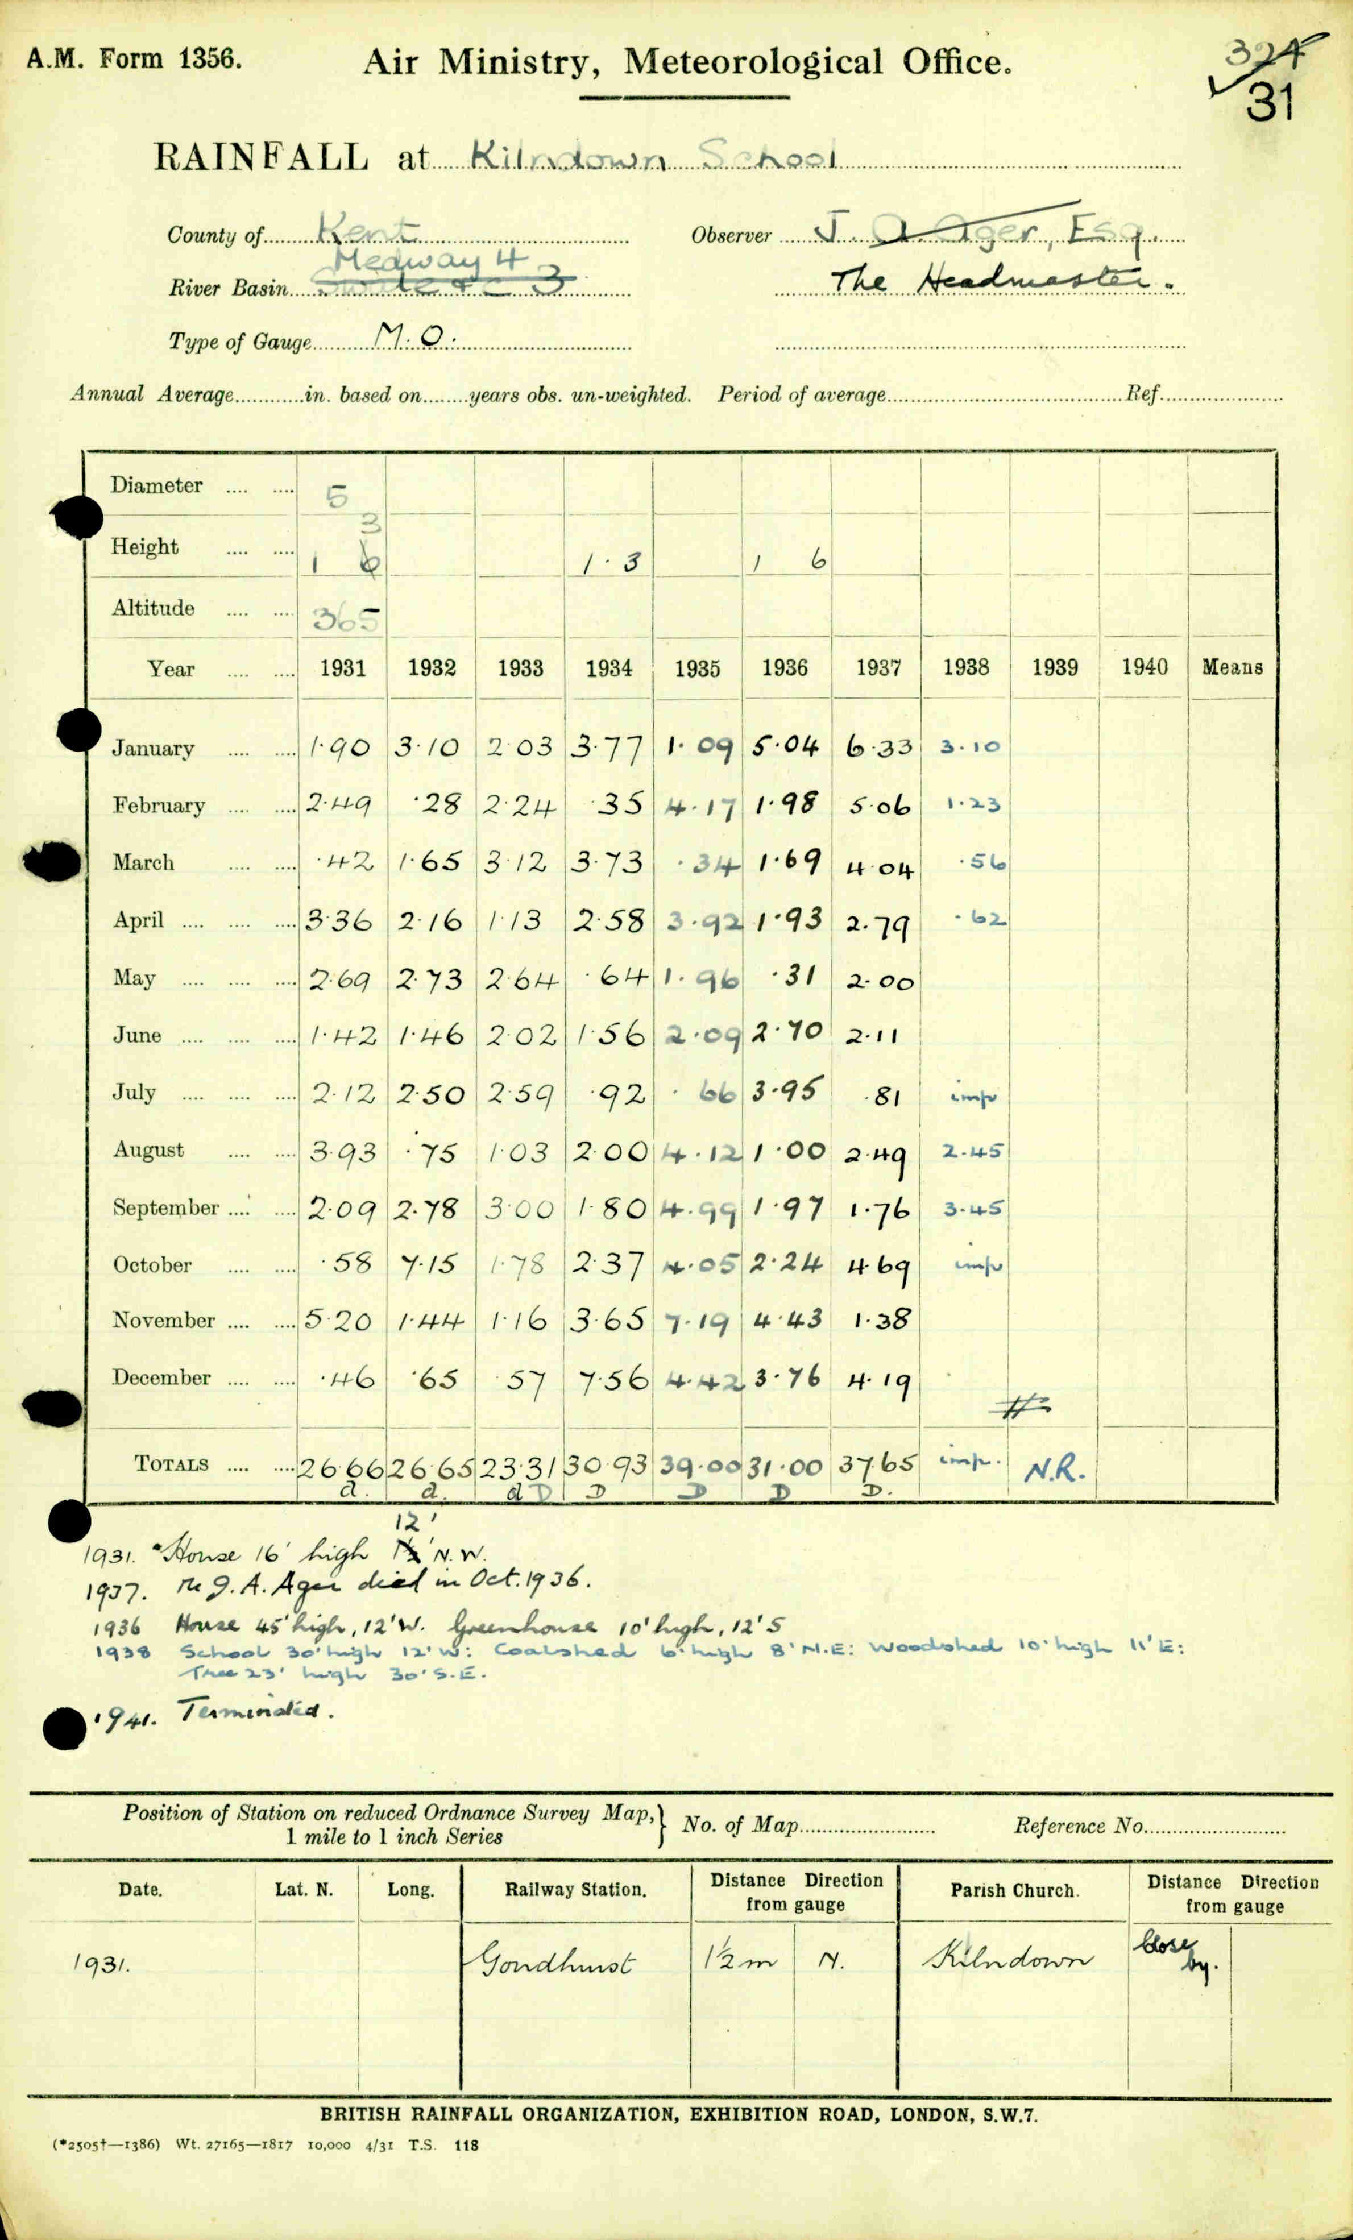 A.M. Form 1356.
Air Ministry, Meteorological Office.
324
31
RAINFALL at Kilndown School
County of Kent
Observer J. A. Ager, Esq.
Medway 4
River Basin 3
The Headmaster.
Type of Gauge M.O.
Annual Average in. based on years obs. un-weighted. Period of average Ref.
Diameter 5
3
Height 1 6 1·3 1 6
Altitude 365
Year 1931 1932 1933 1934 1935 1936 1937 1938 1939 1940 Means
January 1·90 3·10 2·03 3·77 1·09 5·04 6·33 3·10
February 2·49 ·28 2·24 ·35 4·17 1·98 5·06 1·23
March ·42 1·65 3·12 3·73 ·34 1·69 4·04 ·56
April 3·36 2·16 1·13 2·58 3·92 1·93 2·79 ·62
May 2·69 2·73 2·64 ·64 1·96 ·31 2·00
June 1·42 1·46 2·02 1·56 2·09 2·70 2·11
July 2·12 2·50 2·59 ·92 ·66 3·95 ·81 imp
August 3·93 ·75 1·03 2·00 4·12 1·00 2·49 2·45
September 2·09 2·78 3·00 1·80 4·99 1·97 1·76 3·45
October ·58 7·15 1·78 2·37 4·05 2·24 4·69 imp
November 5·20 1·44 1·16 3·65 7·19 4·43 1·38
December ·46 ·65 ·57 7·56 4·42 3·76 4·19
TOTALS 26·66 26·65 23·31 30·93 39·00 31·00 37·65 imp. N.R.
d. d. d D D D D D.
12'
1931. "House 16' high N.W.
1937. Mr J. A. Ager died in Oct. 1936.
1936 House 45' high, 12' W. Greenhouse 10' high, 12' S
1938 School 30' high 12' W: Coalshed 6' high 8' N.E: Woodshed 10' high 11' E:
Tree 23' high 30' S.E.
1941. Terminated.
Position of Station on reduced Ordnance Survey Map,
1 mile to 1 inch Series
No. of Map
Reference No.
Date. Lat. N. Long. Railway Station. Distance Direction from gauge Parish Church. Distance Direction from gauge
1931. Goudhurst 1½ m N. Kilndown Close by.
BRITISH RAINFALL ORGANIZATION, EXHIBITION ROAD, LONDON, S.W.7.
(*2505†—1386) Wt. 27165—1817 10,000 4/31 T.S. 118